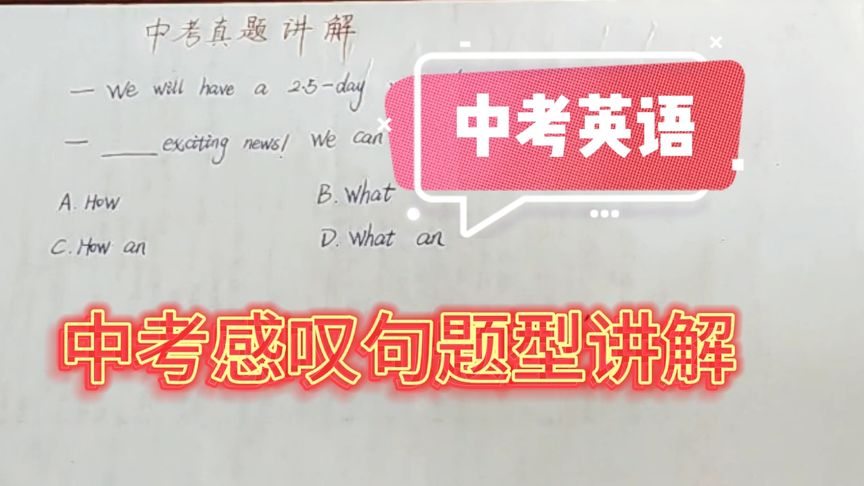 中考真题讲解
— We will have a 2.5-day
中考英语
— ____ exciting news! We can
A. How B. What
C. How an D. What an
中考感叹句题型讲解